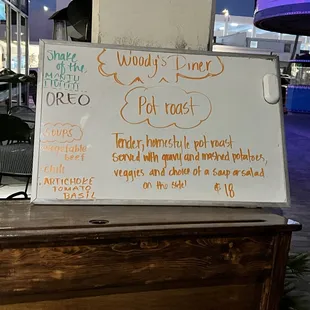 Shake of the
MONTH
OREO
SOUPS
Vegetable
Beef
Chili
- ARTICHOKE
TOMATO
BASIL
Woody's Diner
Pot roast
Tender, homestyle pot roast
Served with gravy and mashed potatoes,
veggies and choice of a soup or salad
on the side!
$18